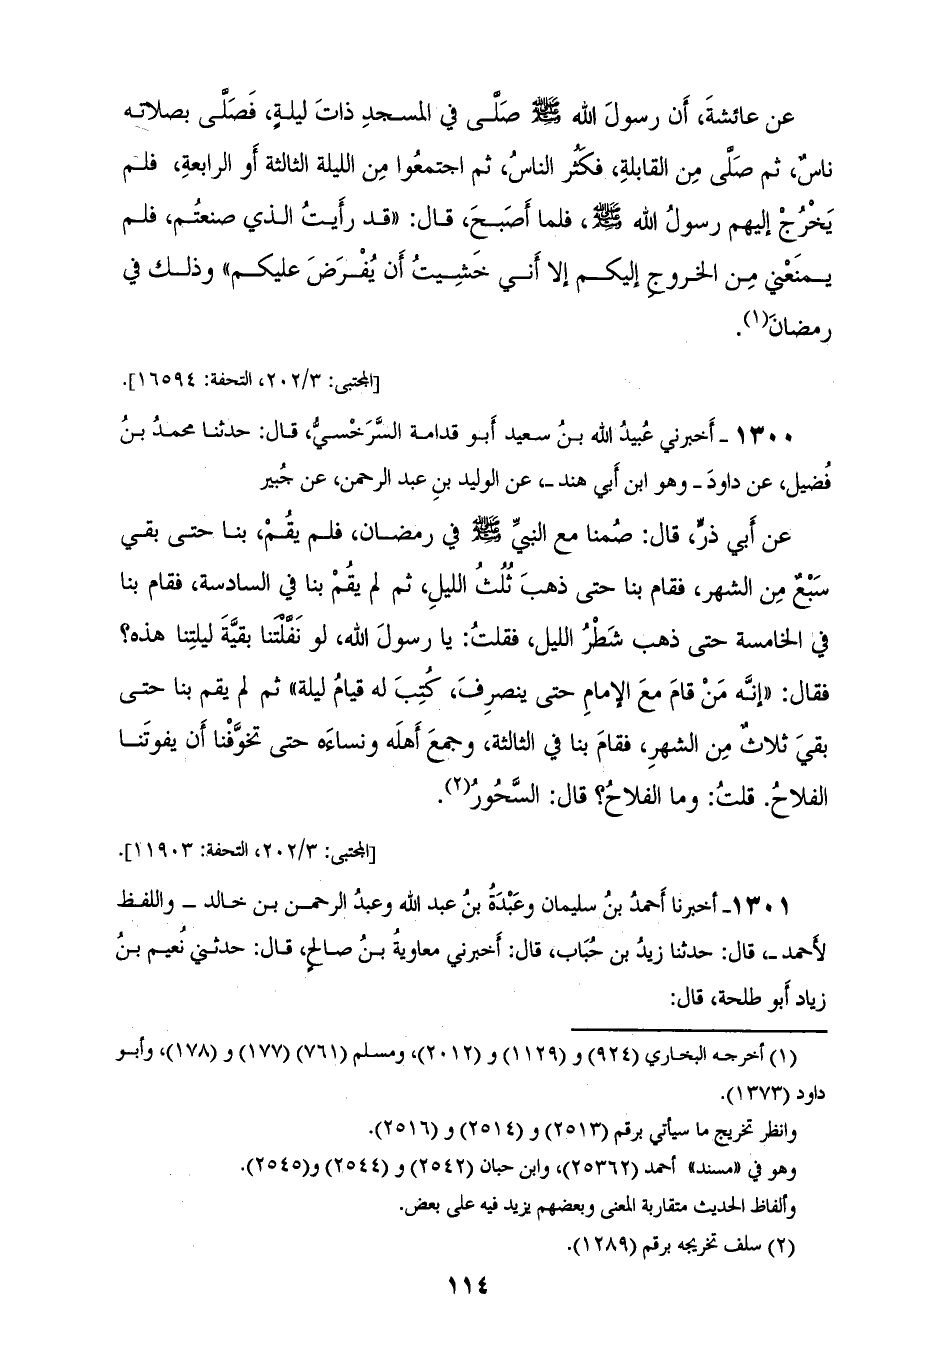 عن عائشةَ، أن رسولَ الله ﷺ صَلَّى في المسجدِ ذاتَ ليلةٍ، فَصَلَّى بصلاتِه
ناسٌ، ثم صَلَّى مِن القابلةِ، فكَثُر الناسُ، ثم اجتمعُوا مِن الليلة الثالثة أو الرابعةِ، فلم
يَخْرُجْ إليهم رسولُ الله ﷺ، فلما أَصَبحَ، قال: «قد رأيتُ الذي صنعتُم، فلم
يمنَعْني مِن الخروجِ إليكم إلا أَني خَشِيتُ أن يُفْرَضَ عليكم» وذلك في
رمضانَ(١).
[المجتبى: ٢٠٢/٣، التحفة: ١٦٥٩٤].
١٣٠٠ـ أَخبرني عُبيدُ الله بنُ سعيد أَبو قدامة السَّرَخْسيُّ، قال: حدثنا محمدُ بنُ
فُضيل، عن داودَ ـ وهو ابن أَبي هند ـ، عن الوليد بنِ عبد الرحمن، عن جُبير
عن أَبي ذرٍّ، قال: صُمنا مع النبيِّ ﷺ في رمضان، فلم يقُمْ، بنا حتى بقي
سَبْعٌ مِن الشهر، فقام بنا حتى ذهبَ ثُلُثُ الليلِ، ثم لم يقُمْ بنا في السادسة، فقام بنا
في الخامسة حتى ذهب شَطْرُ الليل، فقلتُ: يا رسولَ الله، لو نَفَّلْتَنا بقيَّةَ ليلتِنا هذه؟
فقال: «إنَّه مَنْ قامَ معَ الإمامِ حتى ينصرِفَ، كُتِبَ له قيامُ ليلة» ثم لم يقم بنا حتى
بقيَ ثلاثٌ مِن الشهرِ، فقامَ بنا في الثالثة، وجمعَ أهلَه ونساءَه حتى تخوَّفْنا أن يفوتَنا
الفلاحُ. قلتُ: وما الفلاحُ؟ قال: السَّحُورُ(٢).
[المجتبى: ٢٠٢/٣، التحفة: ١١٩٠٣].
١٣٠١ـ أخبرنا أَحمدُ بنُ سليمان وعَبْدَةُ بنُ عبد الله وعبدُ الرحمن بن خالد ـ واللفظ
لأحمد ـ، قال: حدثنا زيدُ بن حُبَاب، قال: أَخبرني معاويةُ بنُ صالحٍ، قال: حدثني نُعيم بنُ
زياد أَبو طلحة، قال:
(١) أخرجه البخاري (٩٢٤) و (١١٢٩) و (٢٠١٢)، ومسلم (٧٦١) (١٧٧) و (١٧٨)، وأبو
داود (١٣٧٣).
وانظر تخريج ما سيأتي برقم (٢٥١٣) و (٢٥١٤) و (٢٥١٦).
وهو في «مسند» أحمد (٢٥٣٦٢)، وابن حبان (٢٥٤٢) و (٢٥٤٤) و(٢٥٤٥).
وألفاظ الحديث متقاربة المعنى وبعضهم يزيد فيه على بعض.
(٢) سلف تخريجه برقم (١٢٨٩).
١١٤